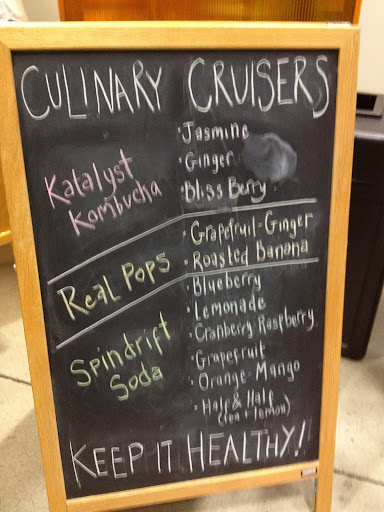 CULINARY CRUISERS
Katalyst
Kombucha
• Jasmine
• Ginger
• Bliss Berry
Real Pops
• Grapefruit-Ginger
• Roasted Banana
Spindrift
Soda
• Blueberry
• Lemonade
• Cranberry-Raspberry
• Grapefruit
• Orange-Mango
• Half & Half
(tea + lemon)
KEEP IT HEALTHY!!